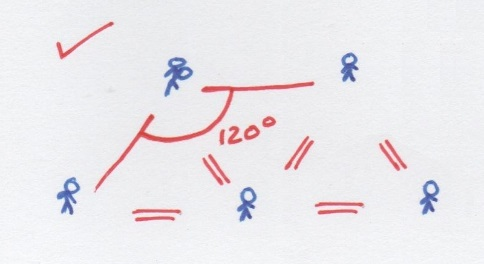 120°